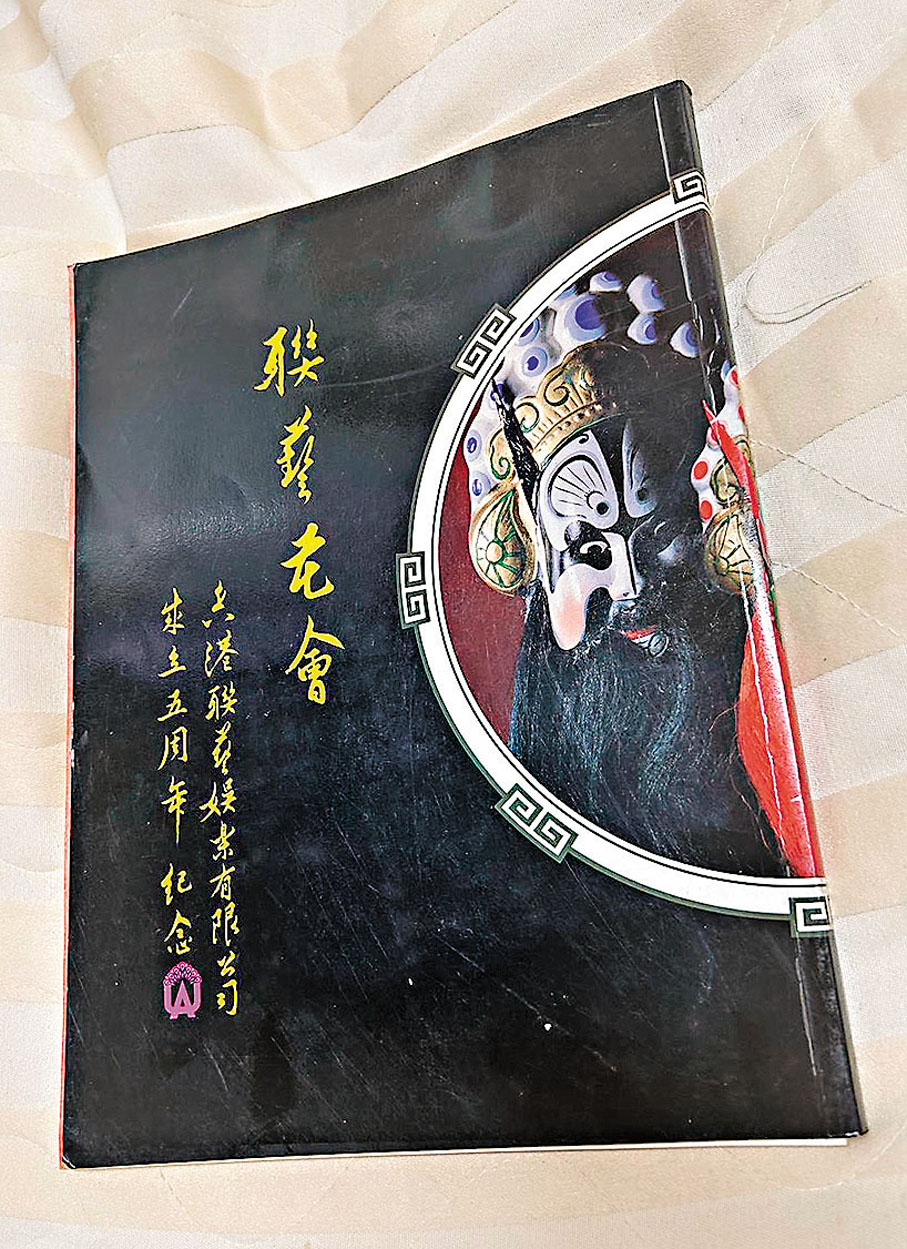 聯藝花會
香港聯藝娛樂有限公司
成立五周年紀念